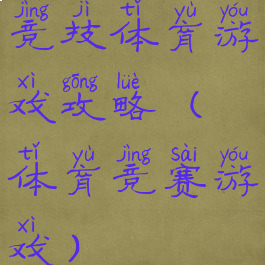 jìng jì tǐ yù yóu
竞技体育游
xì gōng lüè
戏攻略（
tǐ yù jìng sài yóu
体育竞赛游
xì
戏）